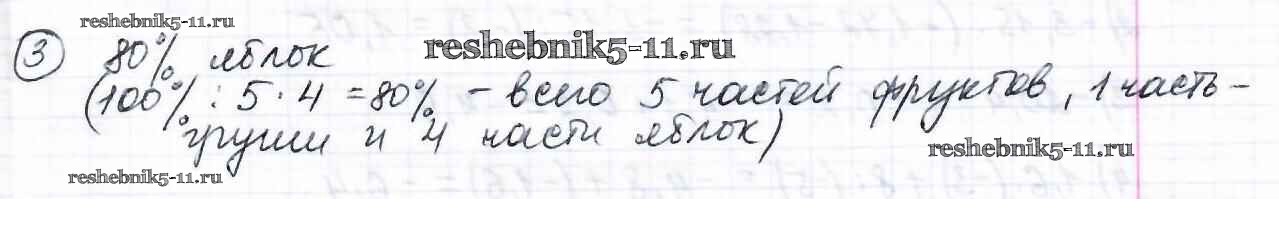 reshebnik5-11.ru
③ 80% яблок reshebnik5-11.ru
(100% : 5 · 4 = 80% - всего 5 частей фруктов, 1 часть -
груши и 4 части яблок) reshebnik5-11.ru
reshebnik5-11.ru